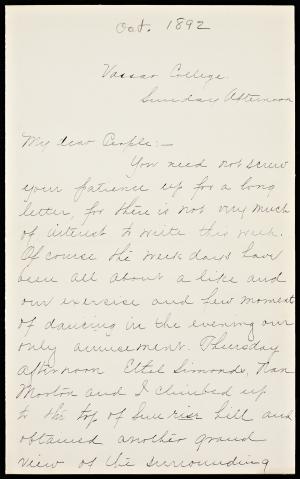 Oct. 1892
Vassar College.
Sunday Afternoon
My dear People:—
You need not screw
your patience up for a long
letter, for there is not very much
of interest to write this week.
Of course the week days have
been all about a like and
our exercise and few moments
of dancing in the evening our
only amusement. Thursday
afternoon Ethel Simonds, Nan
Morton and I climbed up
to the top of Sunrise Hill and
obtained another grand
view of the surrounding